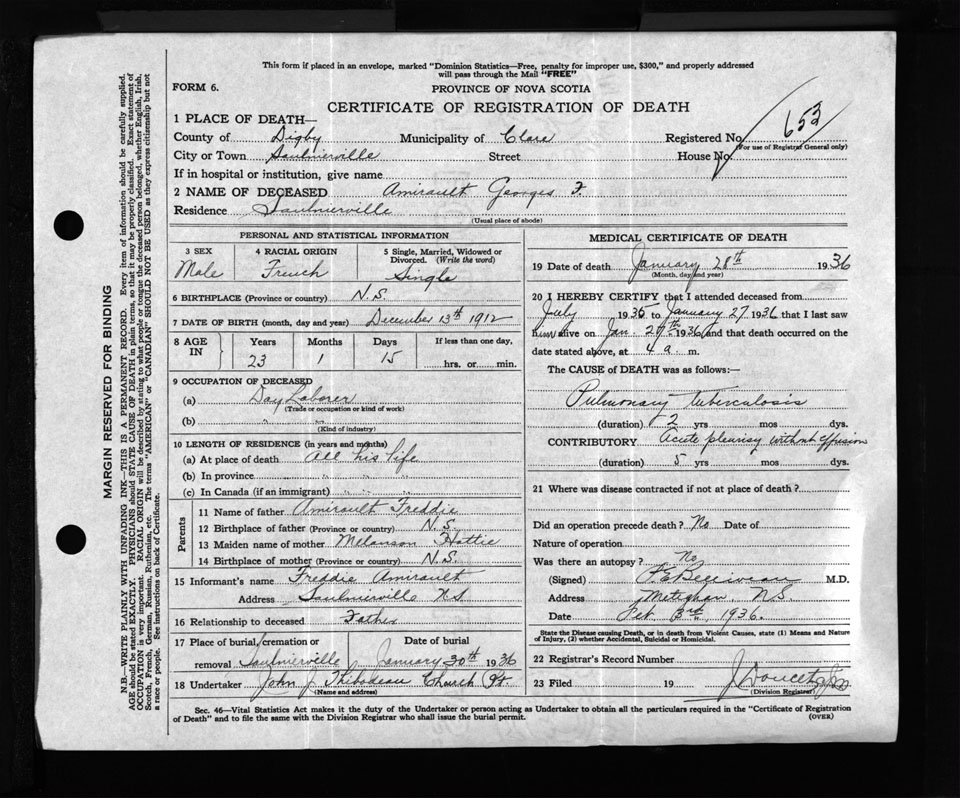 This form if placed in an envelope, marked "Dominion Statistics—Free, penalty for improper use, $300," and properly addressed
will pass through the Mail "FREE"
FORM 6.
PROVINCE OF NOVA SCOTIA
CERTIFICATE OF REGISTRATION OF DEATH
653
1 PLACE OF DEATH—
County of Digby Municipality of Clare Registered No.
(For use of Registrar General only)
City or Town Saulnierville Street House No.
If in hospital or institution, give name
2 NAME OF DECEASED Amirault Georges F.
Residence Saulnierville
(Usual place of abode)
PERSONAL AND STATISTICAL INFORMATION
3 SEX Male
4 RACIAL ORIGIN French
5 Single, Married, Widowed or
Divorced. (Write the word)
Single
6 BIRTHPLACE (Province or country) N.S.
7 DATE OF BIRTH (month, day and year) December 13th 1912
8 AGE IN
Years Months Days If less than one day,
23 1 15 hrs. or min.
9 OCCUPATION OF DECEASED
(a) Day Laborer
(Trade or occupation or kind of work)
(b) " "
(Kind of industry)
10 LENGTH OF RESIDENCE (in years and months)
(a) At place of death All his life
(b) In province " " "
(c) In Canada (if an immigrant) " " "
Parents
11 Name of father Amirault Freddie
12 Birthplace of father (Province or country) N.S.
13 Maiden name of mother Melanson Hattie
14 Birthplace of mother (Province or country) N.S.
15 Informant's name Freddie Amirault
Address Saulnierville NS
16 Relationship to deceased Father
17 Place of burial, cremation or Date of burial
removal Saulnierville January 30th 1936
18 Undertaker John J Thibodeau Church Pt.
(Name and address)
MEDICAL CERTIFICATE OF DEATH
19 Date of death January 28th 1936
(Month, day and year)
20 I HEREBY CERTIFY that I attended deceased from
July 1930 to January 27 1936 that I last saw
him alive on Jan. 27th 1936 and that death occurred on the
date stated above, at 4 a. m.
The CAUSE of DEATH was as follows:—
Pulmonary tuberculosis
(duration) 2 yrs mos dys.
CONTRIBUTORY Acute pleurisy without effusion
(duration) 5 yrs mos dys.
21 Where was disease contracted if not at place of death?
Did an operation precede death? No Date of
Nature of operation
Was there an autopsy? No
(Signed) P.E. Belliveau M.D.
Address Meteghan N.S.
Date Feb 3rd 1936.
State the Disease causing Death, or in death from Violent Causes, state (1) Means and Nature
of Injury, (2) whether Accidental, Suicidal or Homicidal.
22 Registrar's Record Number
23 Filed 19 J Doucet
(Division Registrar)
Sec. 46—Vital Statistics Act makes it the duty of the Undertaker or person acting as Undertaker to obtain all the particulars required in the "Certificate of Registration
of Death" and to file the same with the Division Registrar who shall issue the burial permit. (OVER)
MARGIN RESERVED FOR BINDING
N.B.—WRITE PLAINLY WITH UNFADING INK—THIS IS A PERMANENT RECORD. Every item of information should be carefully supplied.
AGE should be stated EXACTLY. PHYSICIANS should STATE CAUSE OF DEATH in plain terms, so that it may be properly classified. Exact statement of
OCCUPATION is very important. RACIAL ORIGIN will be described by stating to what people or tongue the deceased person belonged, whether English, Irish,
Scotch, French, German, Russian, Ruthenian, etc. The terms "AMERICAN" or "CANADIAN" SHOULD NOT BE USED as they express citizenship but not
a race or people. See instructions on back of Certificate.